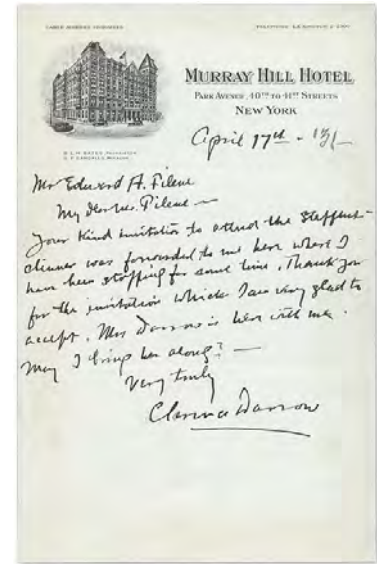 MURRAY HILL HOTEL
PARK AVENUE, 40TH TO 41ST STREETS
NEW YORK
April 17th - 
Mr Edward A. Filene
My dear Mr. Filene —
Your kind invitation to attend the Steffens
dinner was forwarded to me here where I
have been stopping for some time. Thank you
for the invitation which I am very glad to
accept. Mrs Darrow is here with me.
May I bring her along? —
Very truly
Clarence Darrow